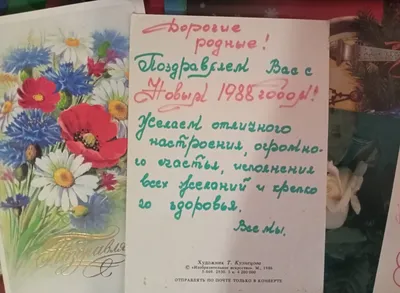 Дорогие
родные!
Поздравляем Вас с
Новым 1988 годом!
Желаем отличного
настроения, огромно-
го счастья, исполнения
всех желаний и крепко
го здоровья.
Все мы.
Художник Т. Кузнецова
ОТПРАВЛЯТЬ ПО ПОЧТЕ ТОЛЬКО В КОНВЕРТЕ